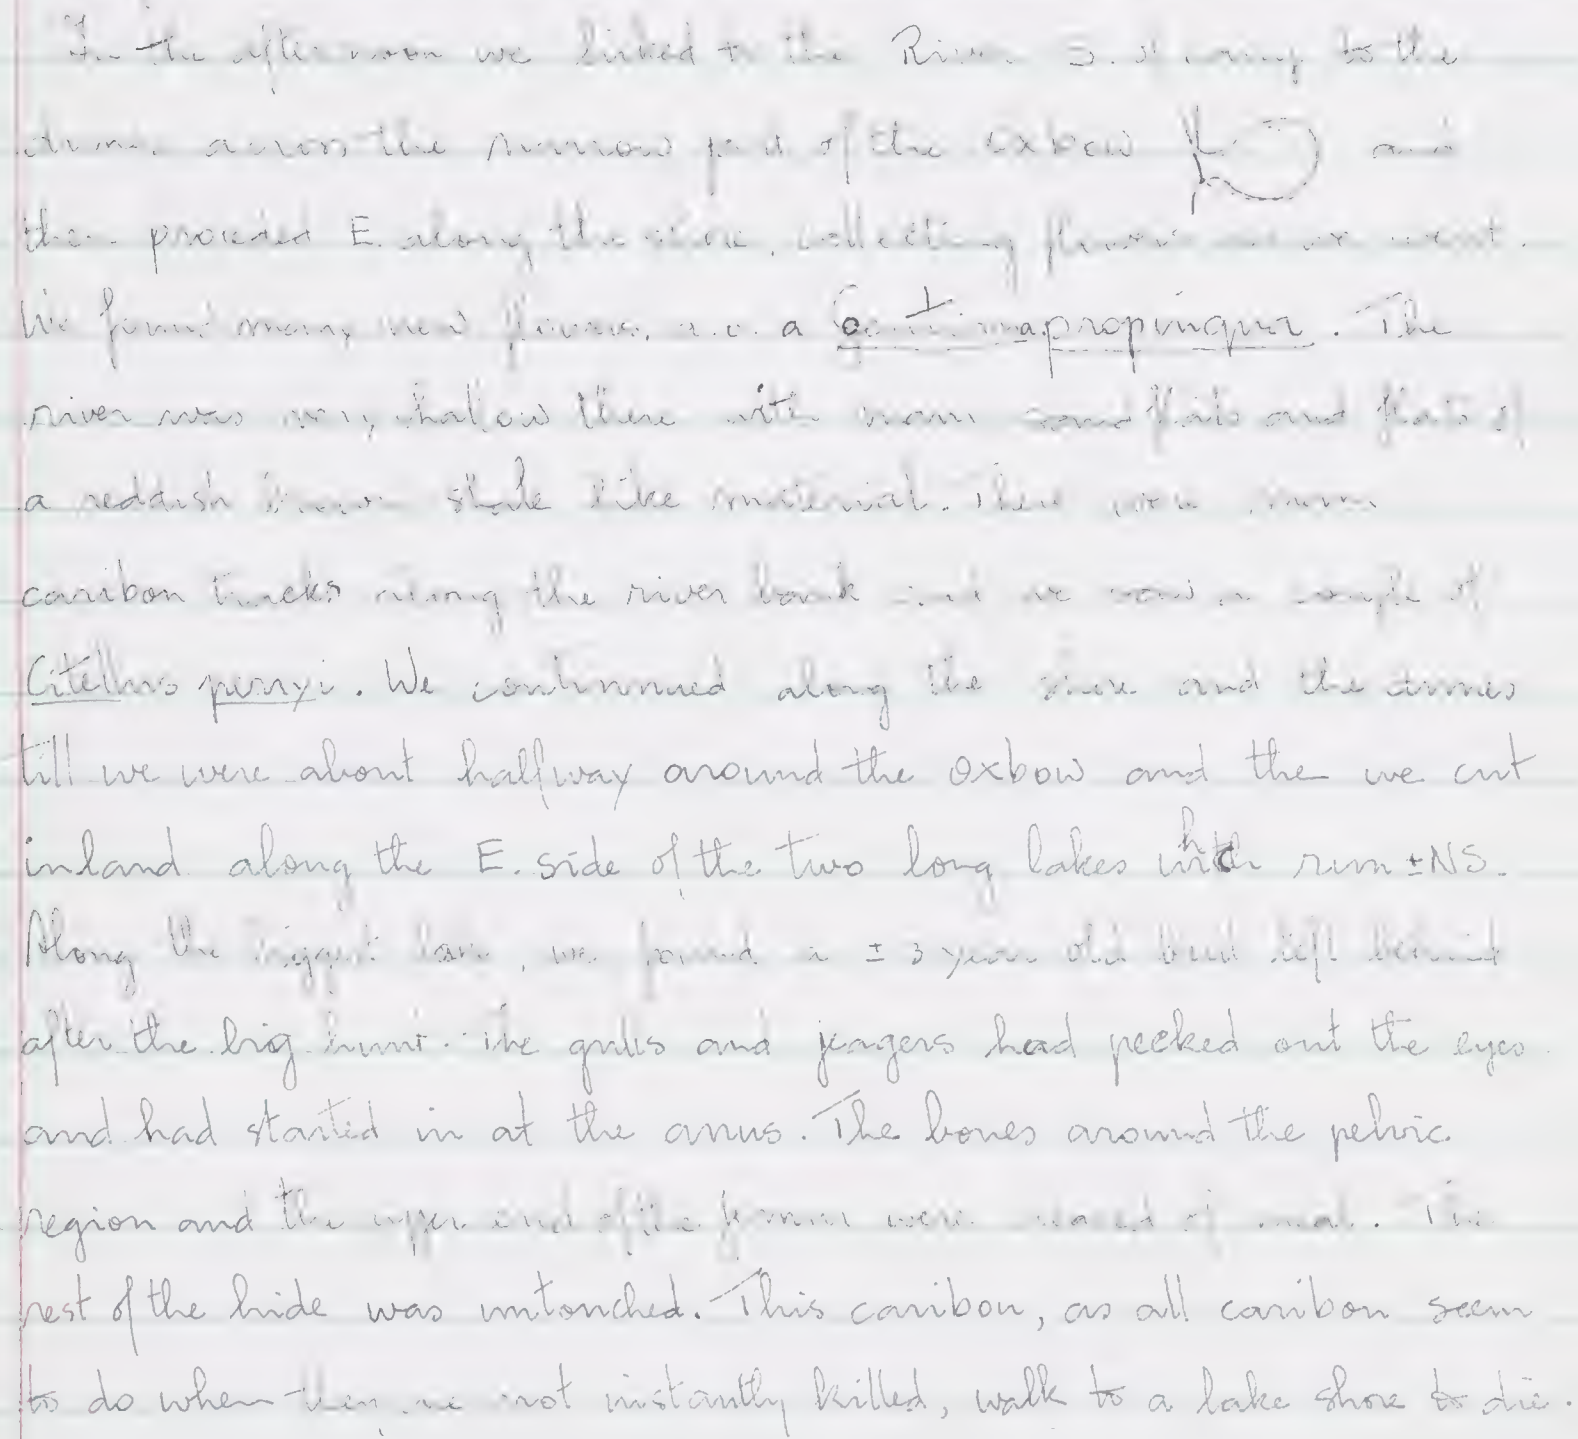 In the afternoon we hiked to the River to the
dunes across the narrow part of the oxbow and
then proceded E. along the shore, collecting flowers as we went.
We found many new flowers, a.o. a Gentiana propinqua. The
river was very shallow there with many sandflats and flats of
a reddish brown shale like material. There were many
caribou tracks along the river bank and we saw a couple of
Citellus perryi. We continnued along the shore and the dunes
till we were about halfway around the oxbow and the we cut
inland along the E. side of the two long lakes which run ± NS.
Along the biggest lake, we found a ± 3 year old bull left behind
after the big hunt. The gulls and jeagers had pecked out the eyes
and had started in at the anus. The bones around the pelvic
region and the upper end of the femur were of meat. The
rest of the hide was untouched. This caribou, as all caribou seem
to do when they are not instantly killed, walk to a lake shore to die.